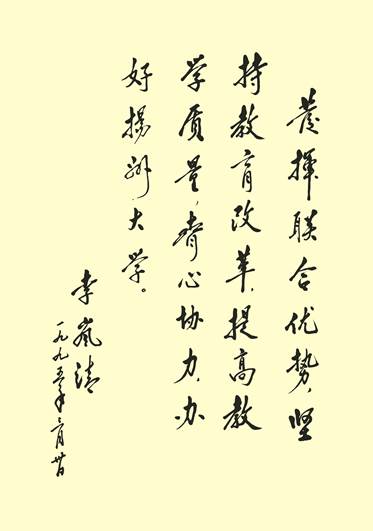 发挥联合优势，坚
持教育改革，提高教
学质量，齐心协力，办
好扬州大学。
李岚清
一九九五年二月廿日